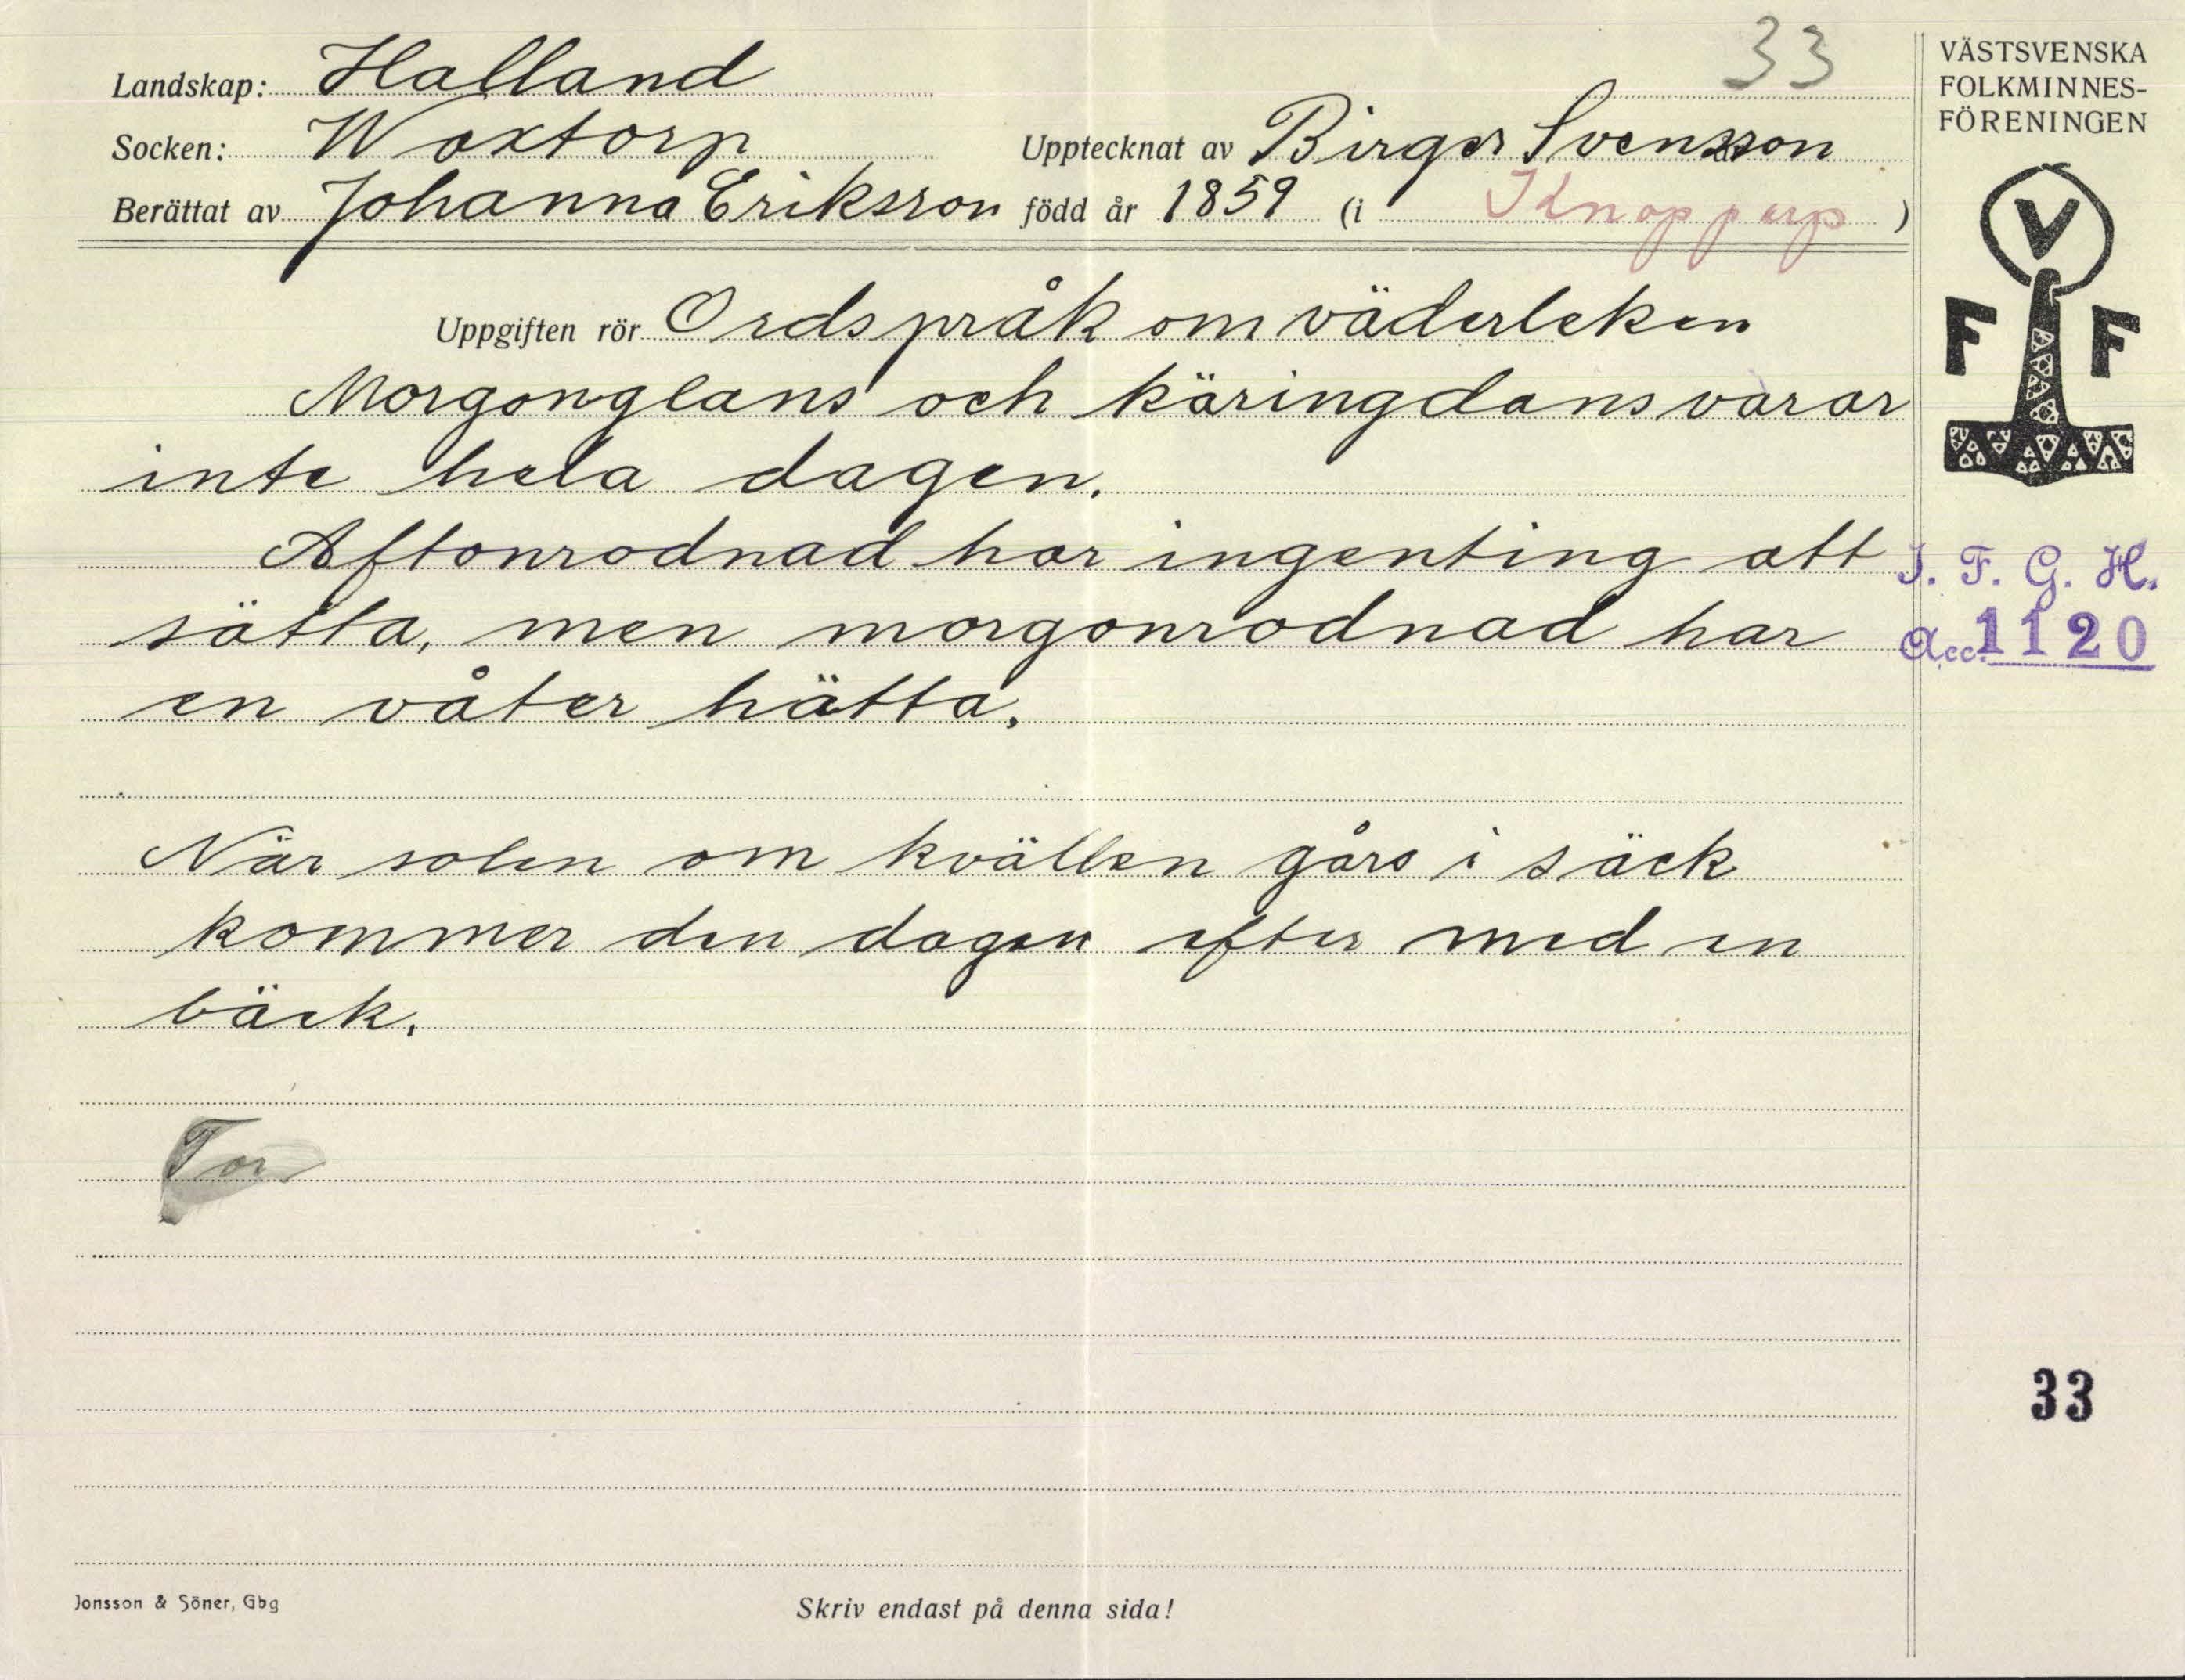 33
Landskap: Halland
Socken: Woxtorp Upptecknat av Birger Svensson
Berättat av Johanna Eriksson född år 1859 (i Knopparp)
Uppgiften rör Ordspråk om väderleken
Morgonglans och käringdans varar
inte hela dagen.
Aftonrodnad har ingenting att
sätta, men morgonrodnad har
en våter hätta.
När solen om kvällen gårs i säck
kommer den dagen efter med en
bäck.
Tor
Jonsson & Söner, Gbg
Skriv endast på denna sida!
VÄSTSVENSKA
FOLKMINNES-
FÖRENINGEN
V
F F
I. F. G. H.
Acc. 1120
33